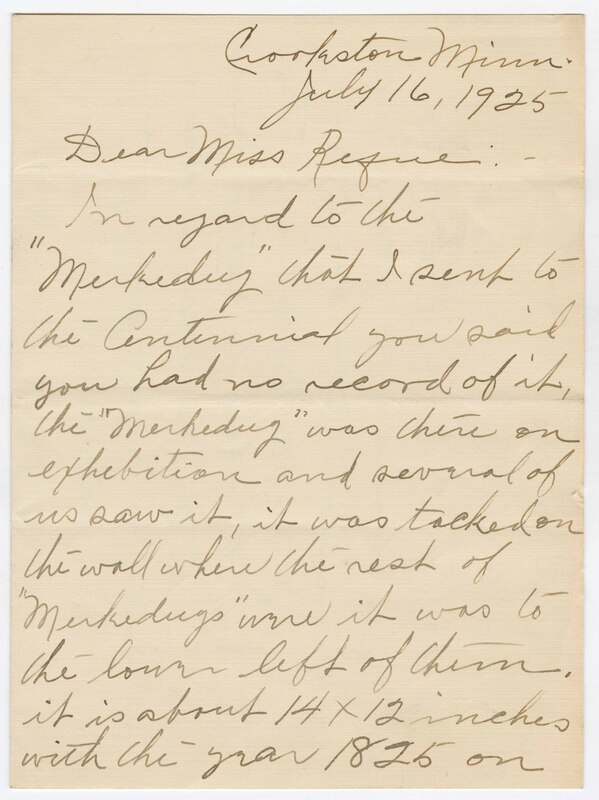 Crookston Minn.
July 16, 1925
Dear Miss Refine: -
In regard to the
"Merkedug" that I sent to
the Centennial you said
you had no record of it,
the "Merkedug" was there on
exhebition and several of
us saw it, it was tacked on
the wall where the rest of
"Merkedugs" were it was to
the lower left of them.
it is about 14 X 12 inches
with the year 1825 on